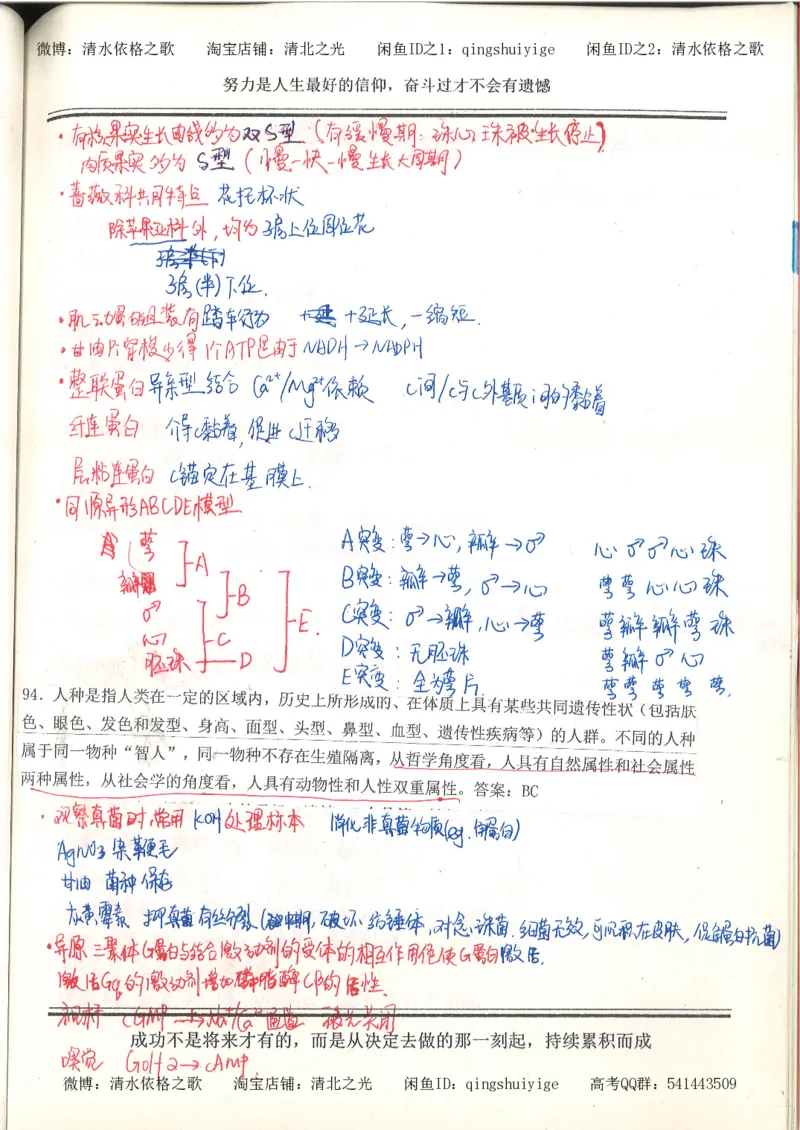 微博：清水依格之歌 淘宝店铺：清北之光 闲鱼ID之1：qingshuiyige 闲鱼ID之2：清水依格之歌
努力是人生最好的信仰，奋斗过才不会有遗憾
·有核果实生长曲线约为双S型（有缓慢期：珠心、珠被生长停止）
肉质果实约为S型（慢-快-慢生长大周期）
·蔷薇科共同特点 花托杯状
除苹果亚科外，均为子房上位周位花
子房(半)下位.
·肌动蛋白组装有踏车行为 +延长，-缩短.
·甘油片穿梭少得1个ATP是由于NADH→NADPH
·整联蛋白异亲型结合 Ca²⁺/Mg²⁺依赖 C间/C与C外基质间的黏着
纤连蛋白 介导C黏着，促进C迁移
层粘连蛋白 C锚定在基膜上.
·同源异形ABCDE模型
萼 A
瓣 B
♂ E.
心 C
胚珠 D
A突变：萼→心，瓣→♂ 心♂♂心珠
B突变：瓣→萼，♂→心 萼萼心心珠
C突变：♂→瓣，心→萼 萼瓣瓣萼珠
D突变：无胚珠 萼瓣♂心
E突变：全为萼片 萼萼萼萼萼.
94．人种是指人类在一定的区域内，历史上所形成的、在体质上具有某些共同遗传性状（包括肤
色、眼色、发色和发型、身高、面型、头型、鼻型、血型、遗传性疾病等）的人群。不同的人种
属于同一物种“智人”，同一物种不存在生殖隔离，从哲学角度看，人具有自然属性和社会属性
两种属性，从社会学的角度看，人具有动物性和人性双重属性。答案：BC
·观察真菌时，常用KOH处理标本 消化非真菌物质(eg.角蛋白)
AgNO3染鞭毛
甘油 菌种保存
灰黄霉素 抑真菌有丝分裂（中期，破坏纺锤体，对念珠菌、细菌无效，可沉积在皮肤，促角蛋白抗菌)
·异源三聚体G蛋白与结合激动剂的受体的相互作用使G蛋白激活.
激活Gq的激动剂增加磷脂酶C β的活性.
视杆 cGMP→Na⁺/Ca²⁺通道 被光关闭
成功不是将来才有的，而是从决定去做的那一刻起，持续累积而成
嗅觉 Golf α→cAMP.
微博：清水依格之歌 淘宝店铺：清北之光 闲鱼ID：qingshuiyige 高考QQ群：541443509